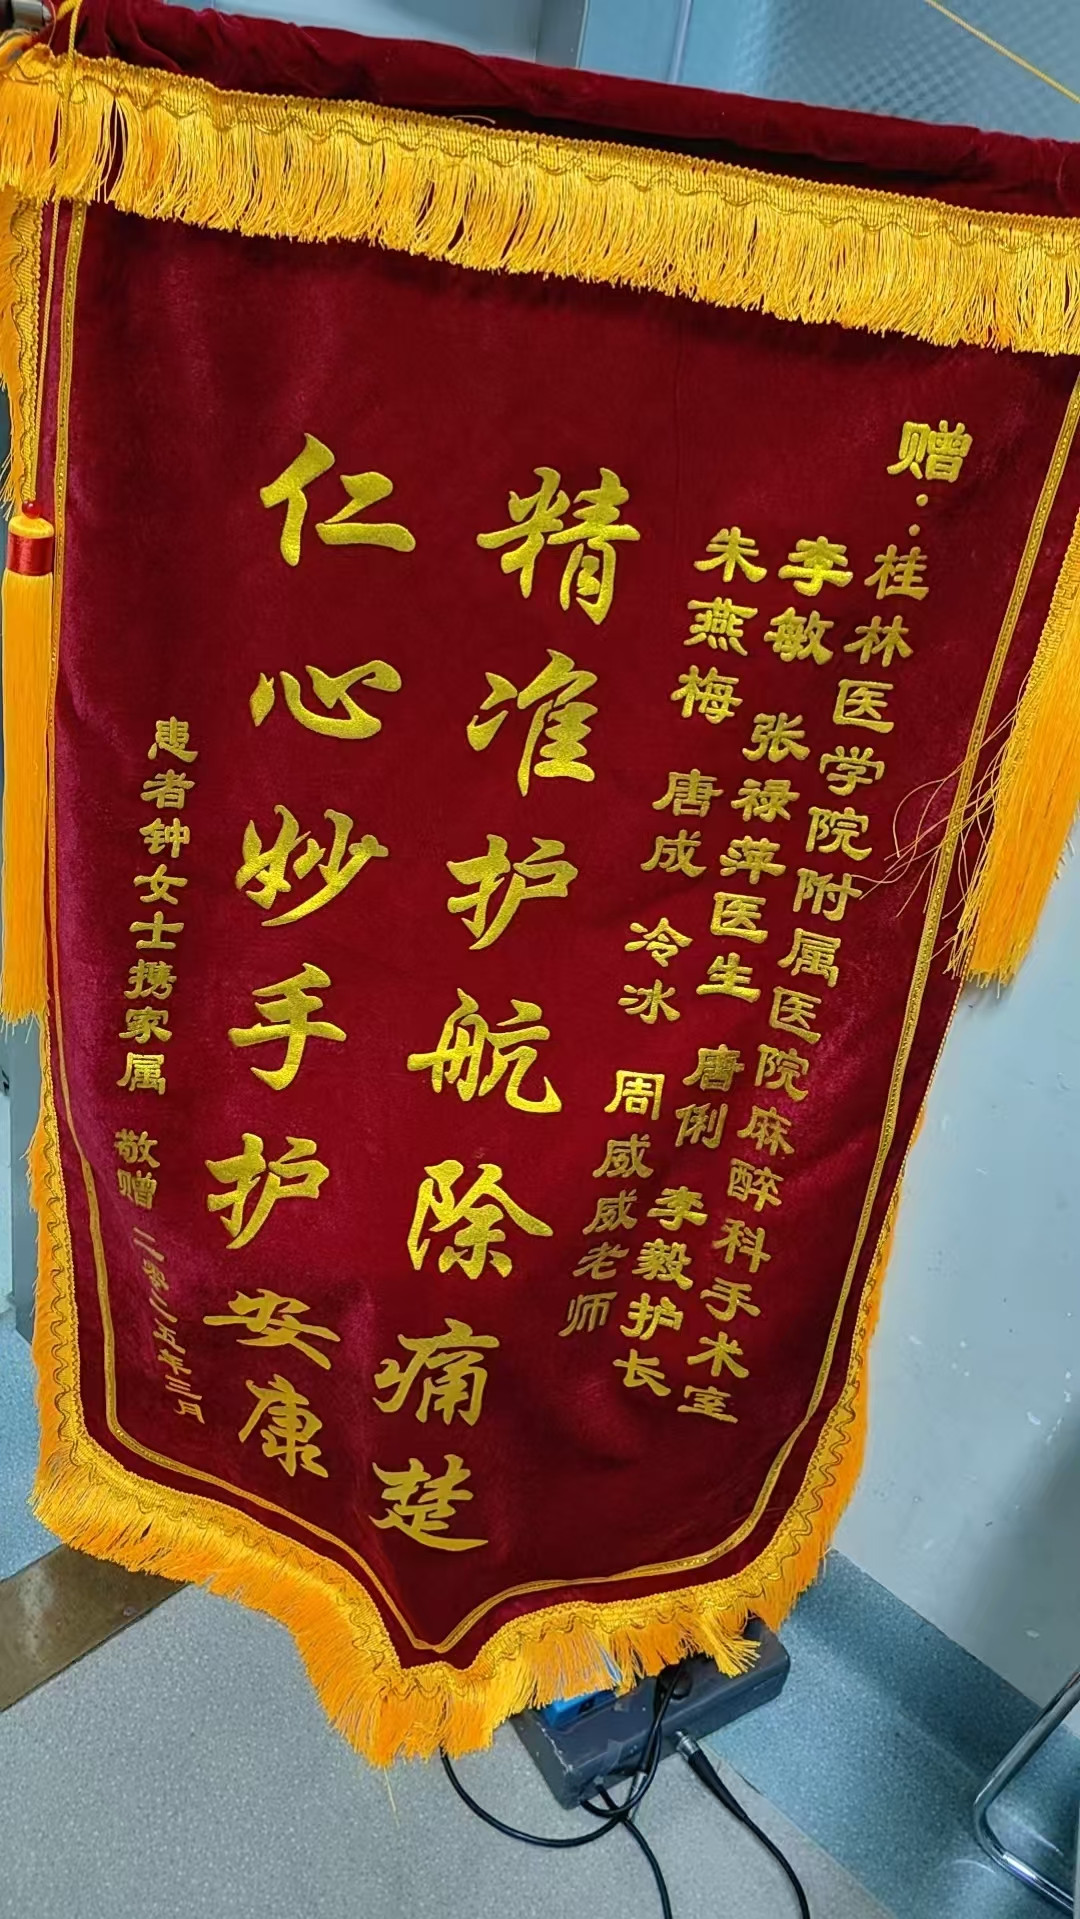 赠：桂林医学院附属医院麻醉科手术室
李敏 张禄萍医生 唐俐 李毅护长
朱燕梅 唐成 冷冰 周威威老师
精准护航除痛楚
仁心妙手护安康
患者钟女士携家属 敬赠 二零二五年三月